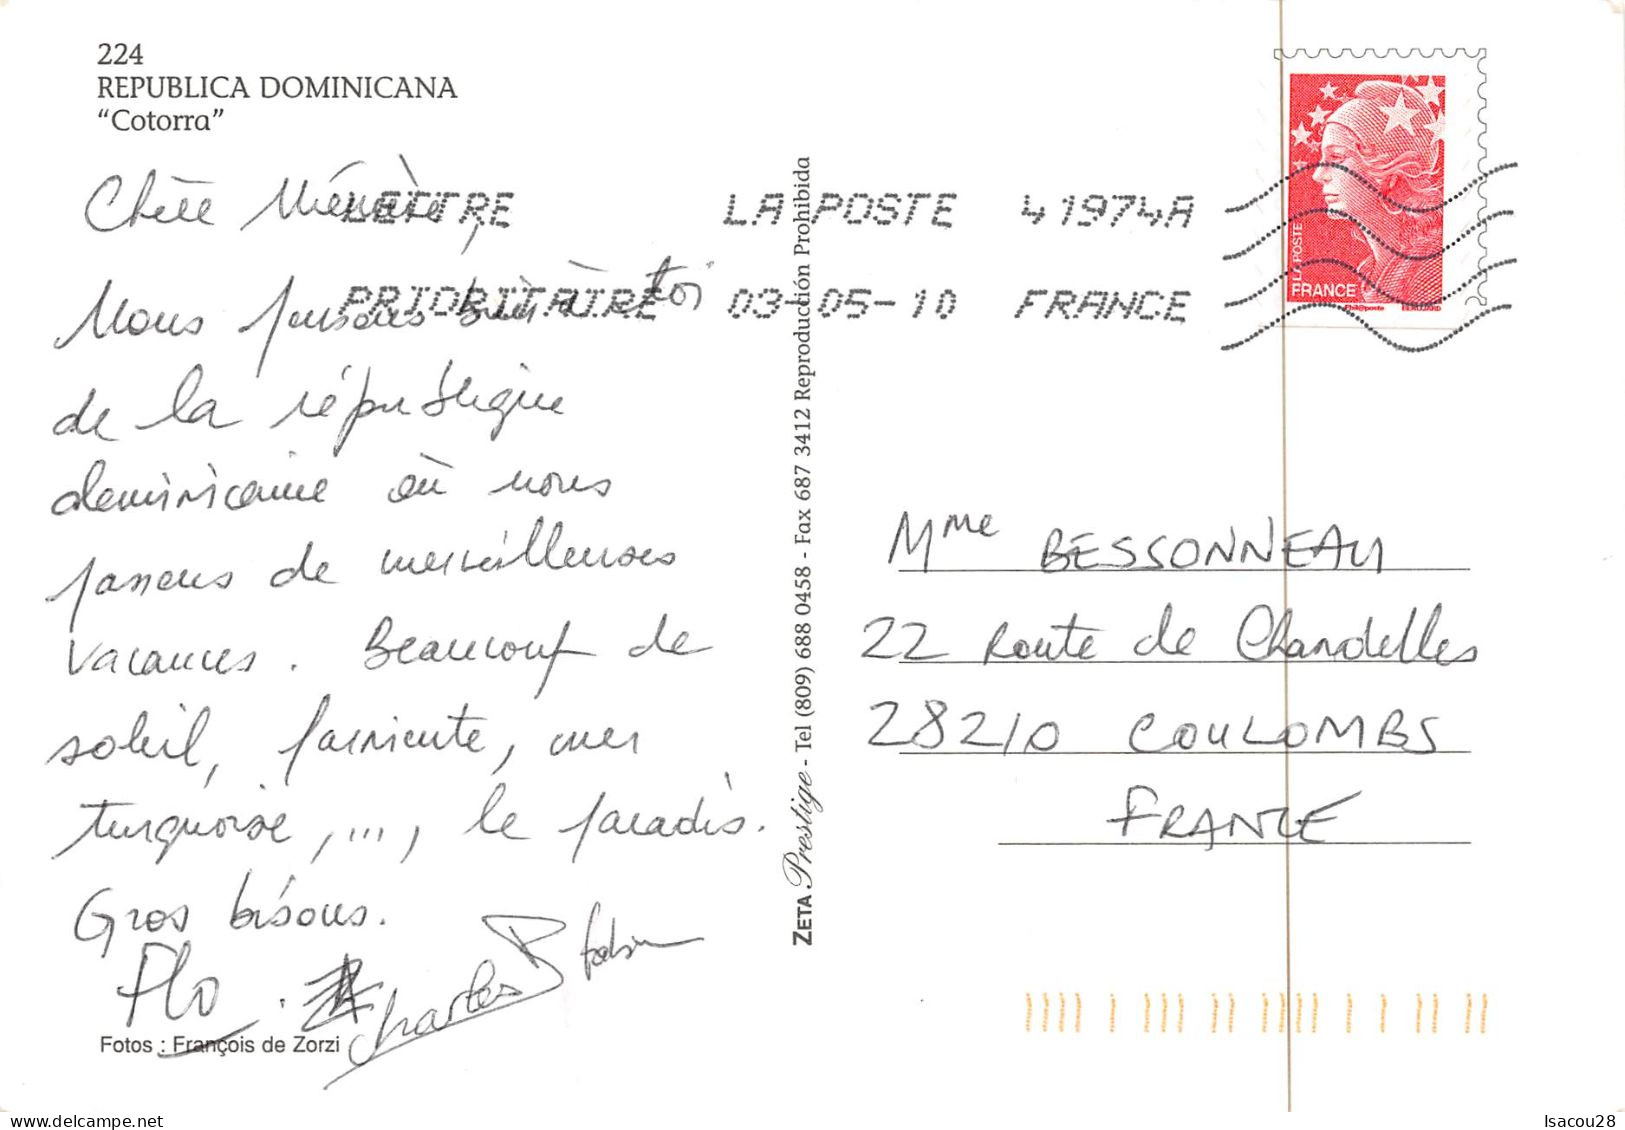 224
REPUBLICA DOMINICANA
“Cotorra”
Chère Mémère,
Nous pensons bien à toi
de la république
dominicaine où nous
passons de merveilleuses
vacances. Beaucoup de
soleil, farniente, mer
turquoise, ..., le paradis.
Gros bisous.
Flo. Charles
Fotos : François de Zorzi
ZETA Prestige - Tel (809) 688 0458 - Fax 687 3412 Reproducción Prohibida
LETTRE LA POSTE 41974A
PRIORITAIRE 03-05-10 FRANCE
LA POSTE
FRANCE
Mme BESSONNEAU
22 Route de Chandelles
28210 COULOMBS
FRANCE
delcampe.net
Isacou28